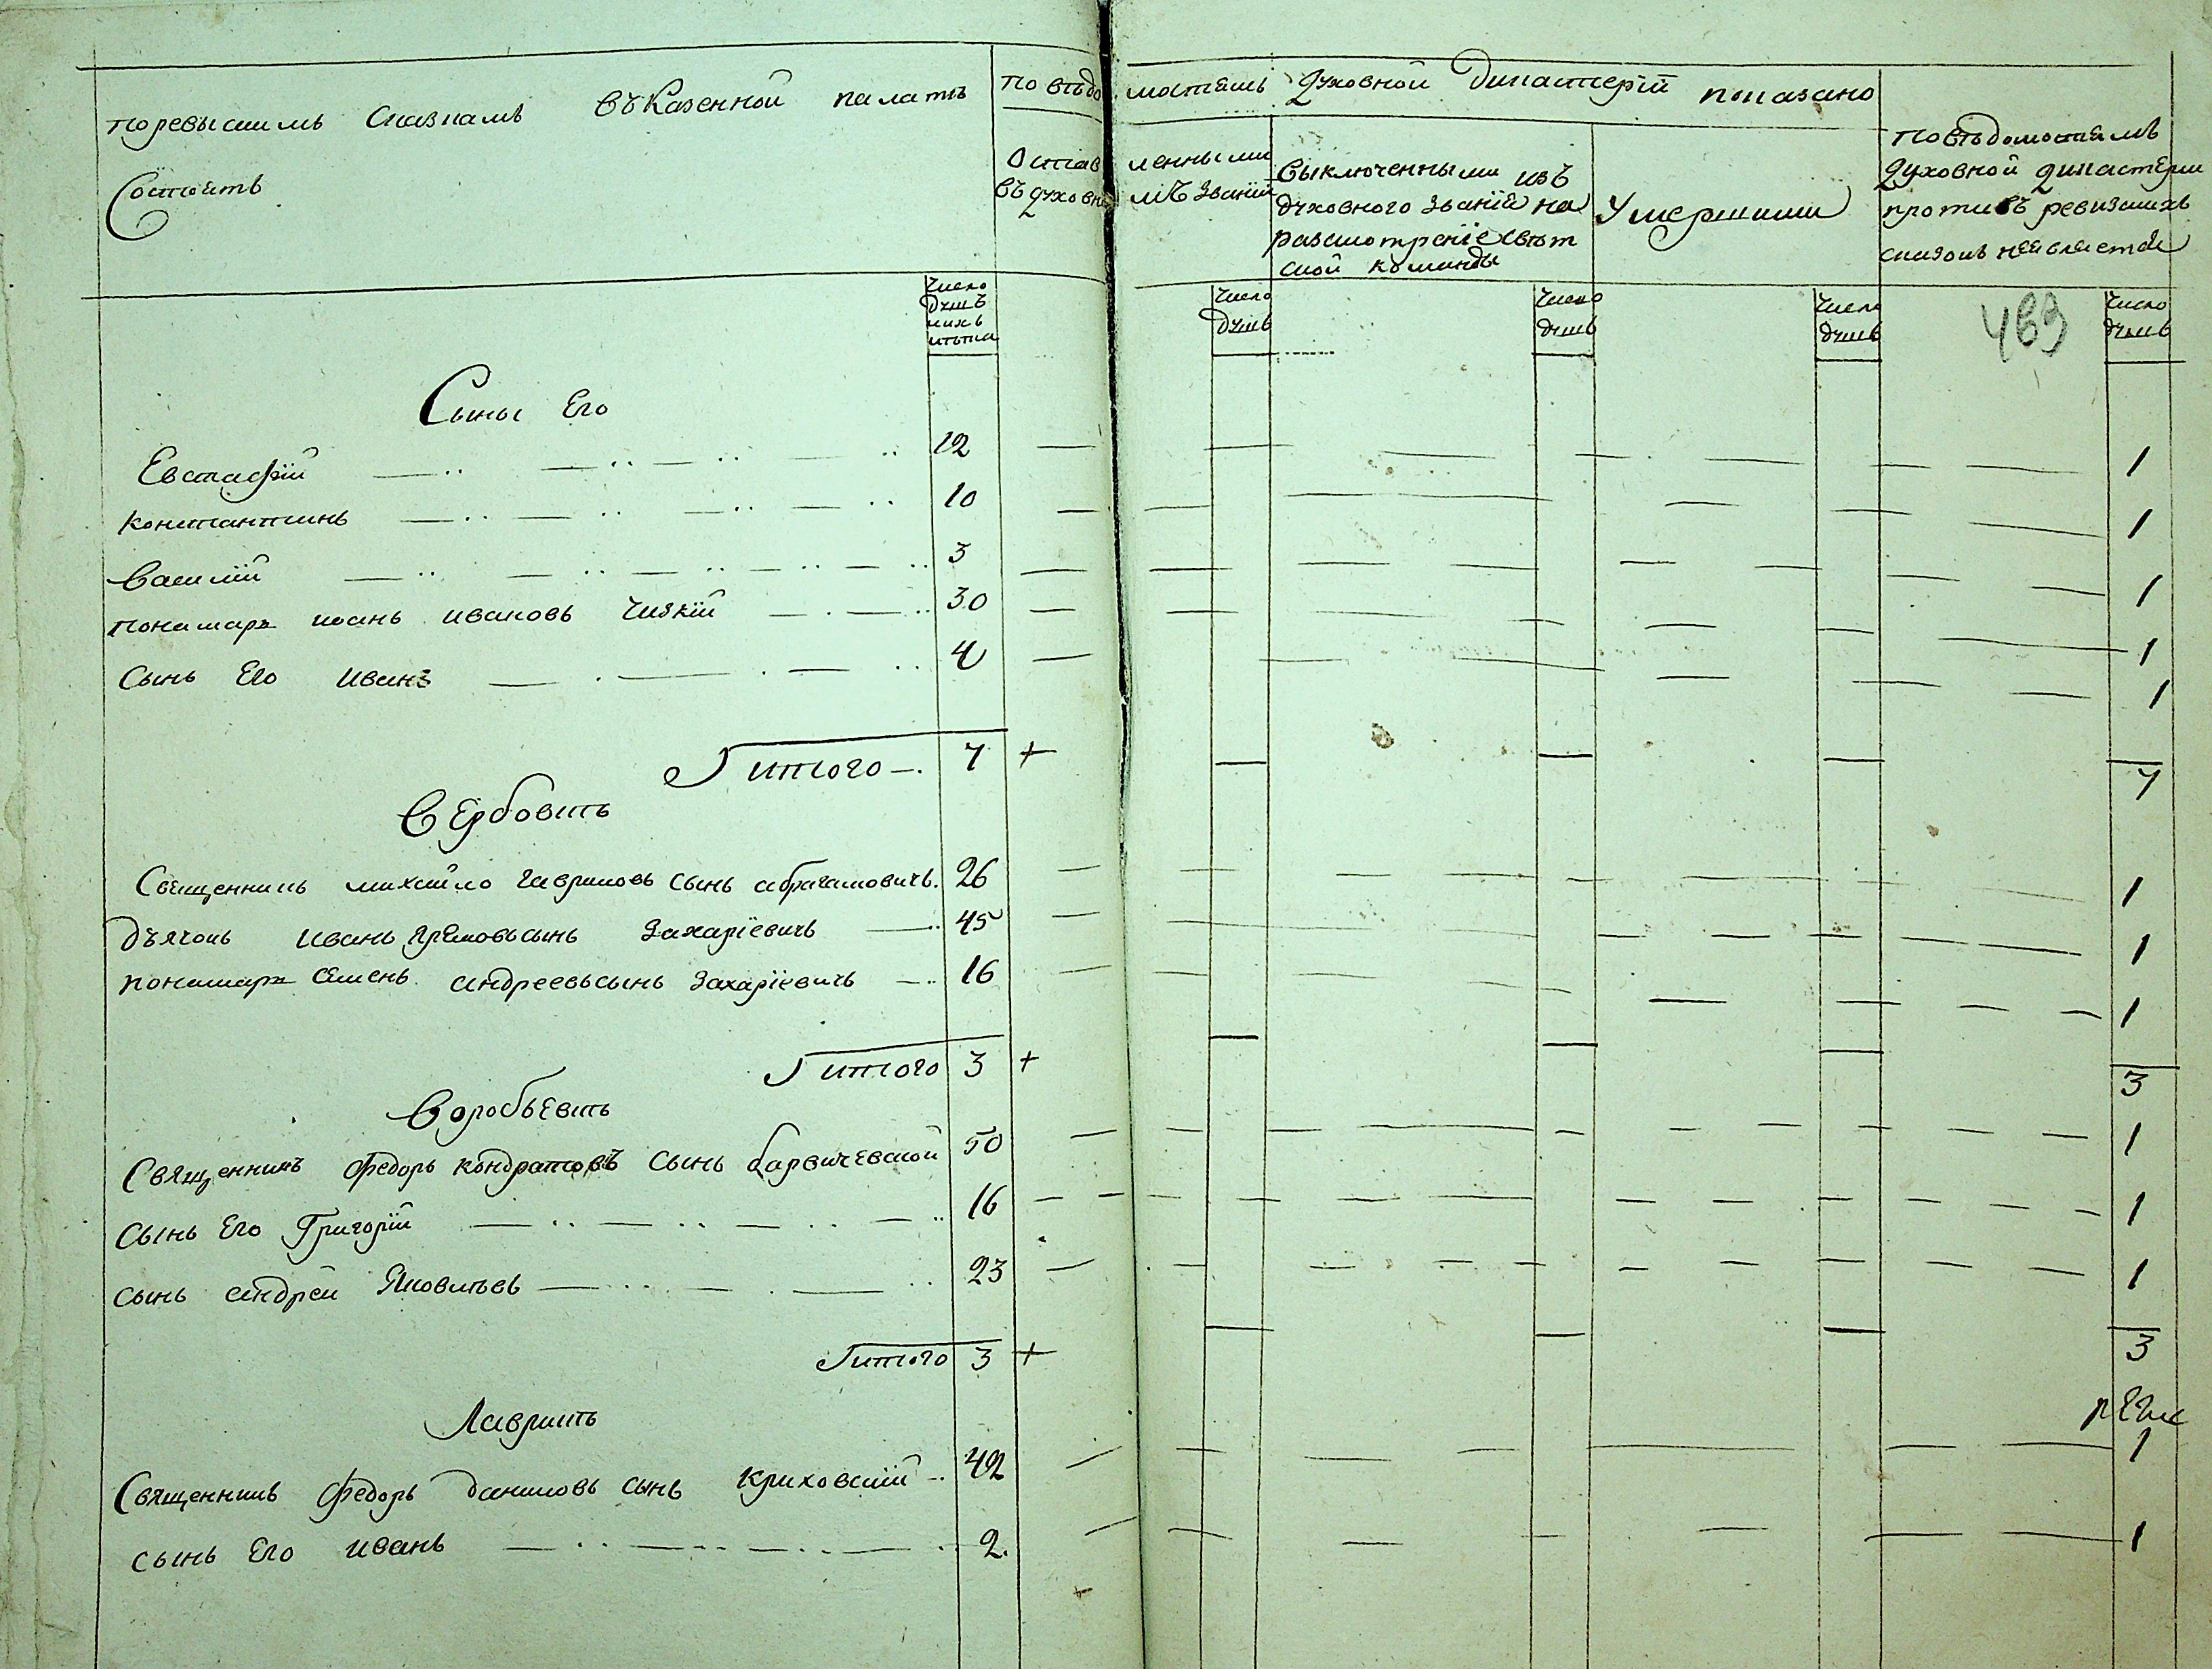 по ревыским сказкамъ въ Казенной палатѣ
Состоитъ
по вѣдомостямъ Духовной Дикастерїй показано
Оставленными
въ духовномъ званїй
выключенными изъ
духовного званїя на
разсмотренїе свѣт
ской команды
Умершими
по вѣдомостямъ
духовной дикастерїи
противъ ревизкихъ
сказокъ неявляется
Число
душъ
ихъ
лѣта
Число
душъ
Число
душъ
Число
душъ
Число
душъ
Сыны Его
Евстафїй 12 1
константинъ 10 1
Василїй 3 1
понамарь иоанъ ивановъ Чизкїй 30 1
Сынъ Его иванъ 4 1
итого 7 + 7
Вербовкѣ
Священникъ михайло гавриловъ сынъ абрагамовичъ 26 1
дьячокъ иванъ сынъ Захарїевичъ 45 1
понамарь Семенъ андреевъ сынъ Захарїевичъ 16 1
итого 3 + 3
Воробьевкѣ
Священникъ Федоръ кондратовъ сынъ барвичевской 50 1
Сынъ Его Григорїй 16 1
сынъ андрей Яковлевъ 23 1
итого 3 + 3
Лавркѣ
Священникъ Федоръ даниловъ сынъ криховский 42 1
сынъ Его иванъ 2 1